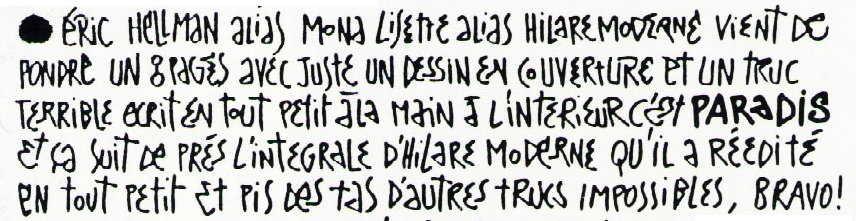 ● ÉRIC HELLMAN alias MONA LISETTE alias HILARE MODERNE VIENT DE
PONDRE UN 8 PAGES AVEC JUSTE UN DESSIN EN COUVERTURE ET UN TRUC
TERRIBLE ECRIT EN TOUT PETIT À LA MAIN À L'INTERIEUR C'EST PARADIS
ET ÇA SUIT DE PRÉS L'INTEGRALE D'HILARE MODERNE QU'IL A RÉEDITÉ
EN TOUT PETIT ET PIS DES TAS D'AUTRES TRUCS IMPOSSIBLES, BRAVO!